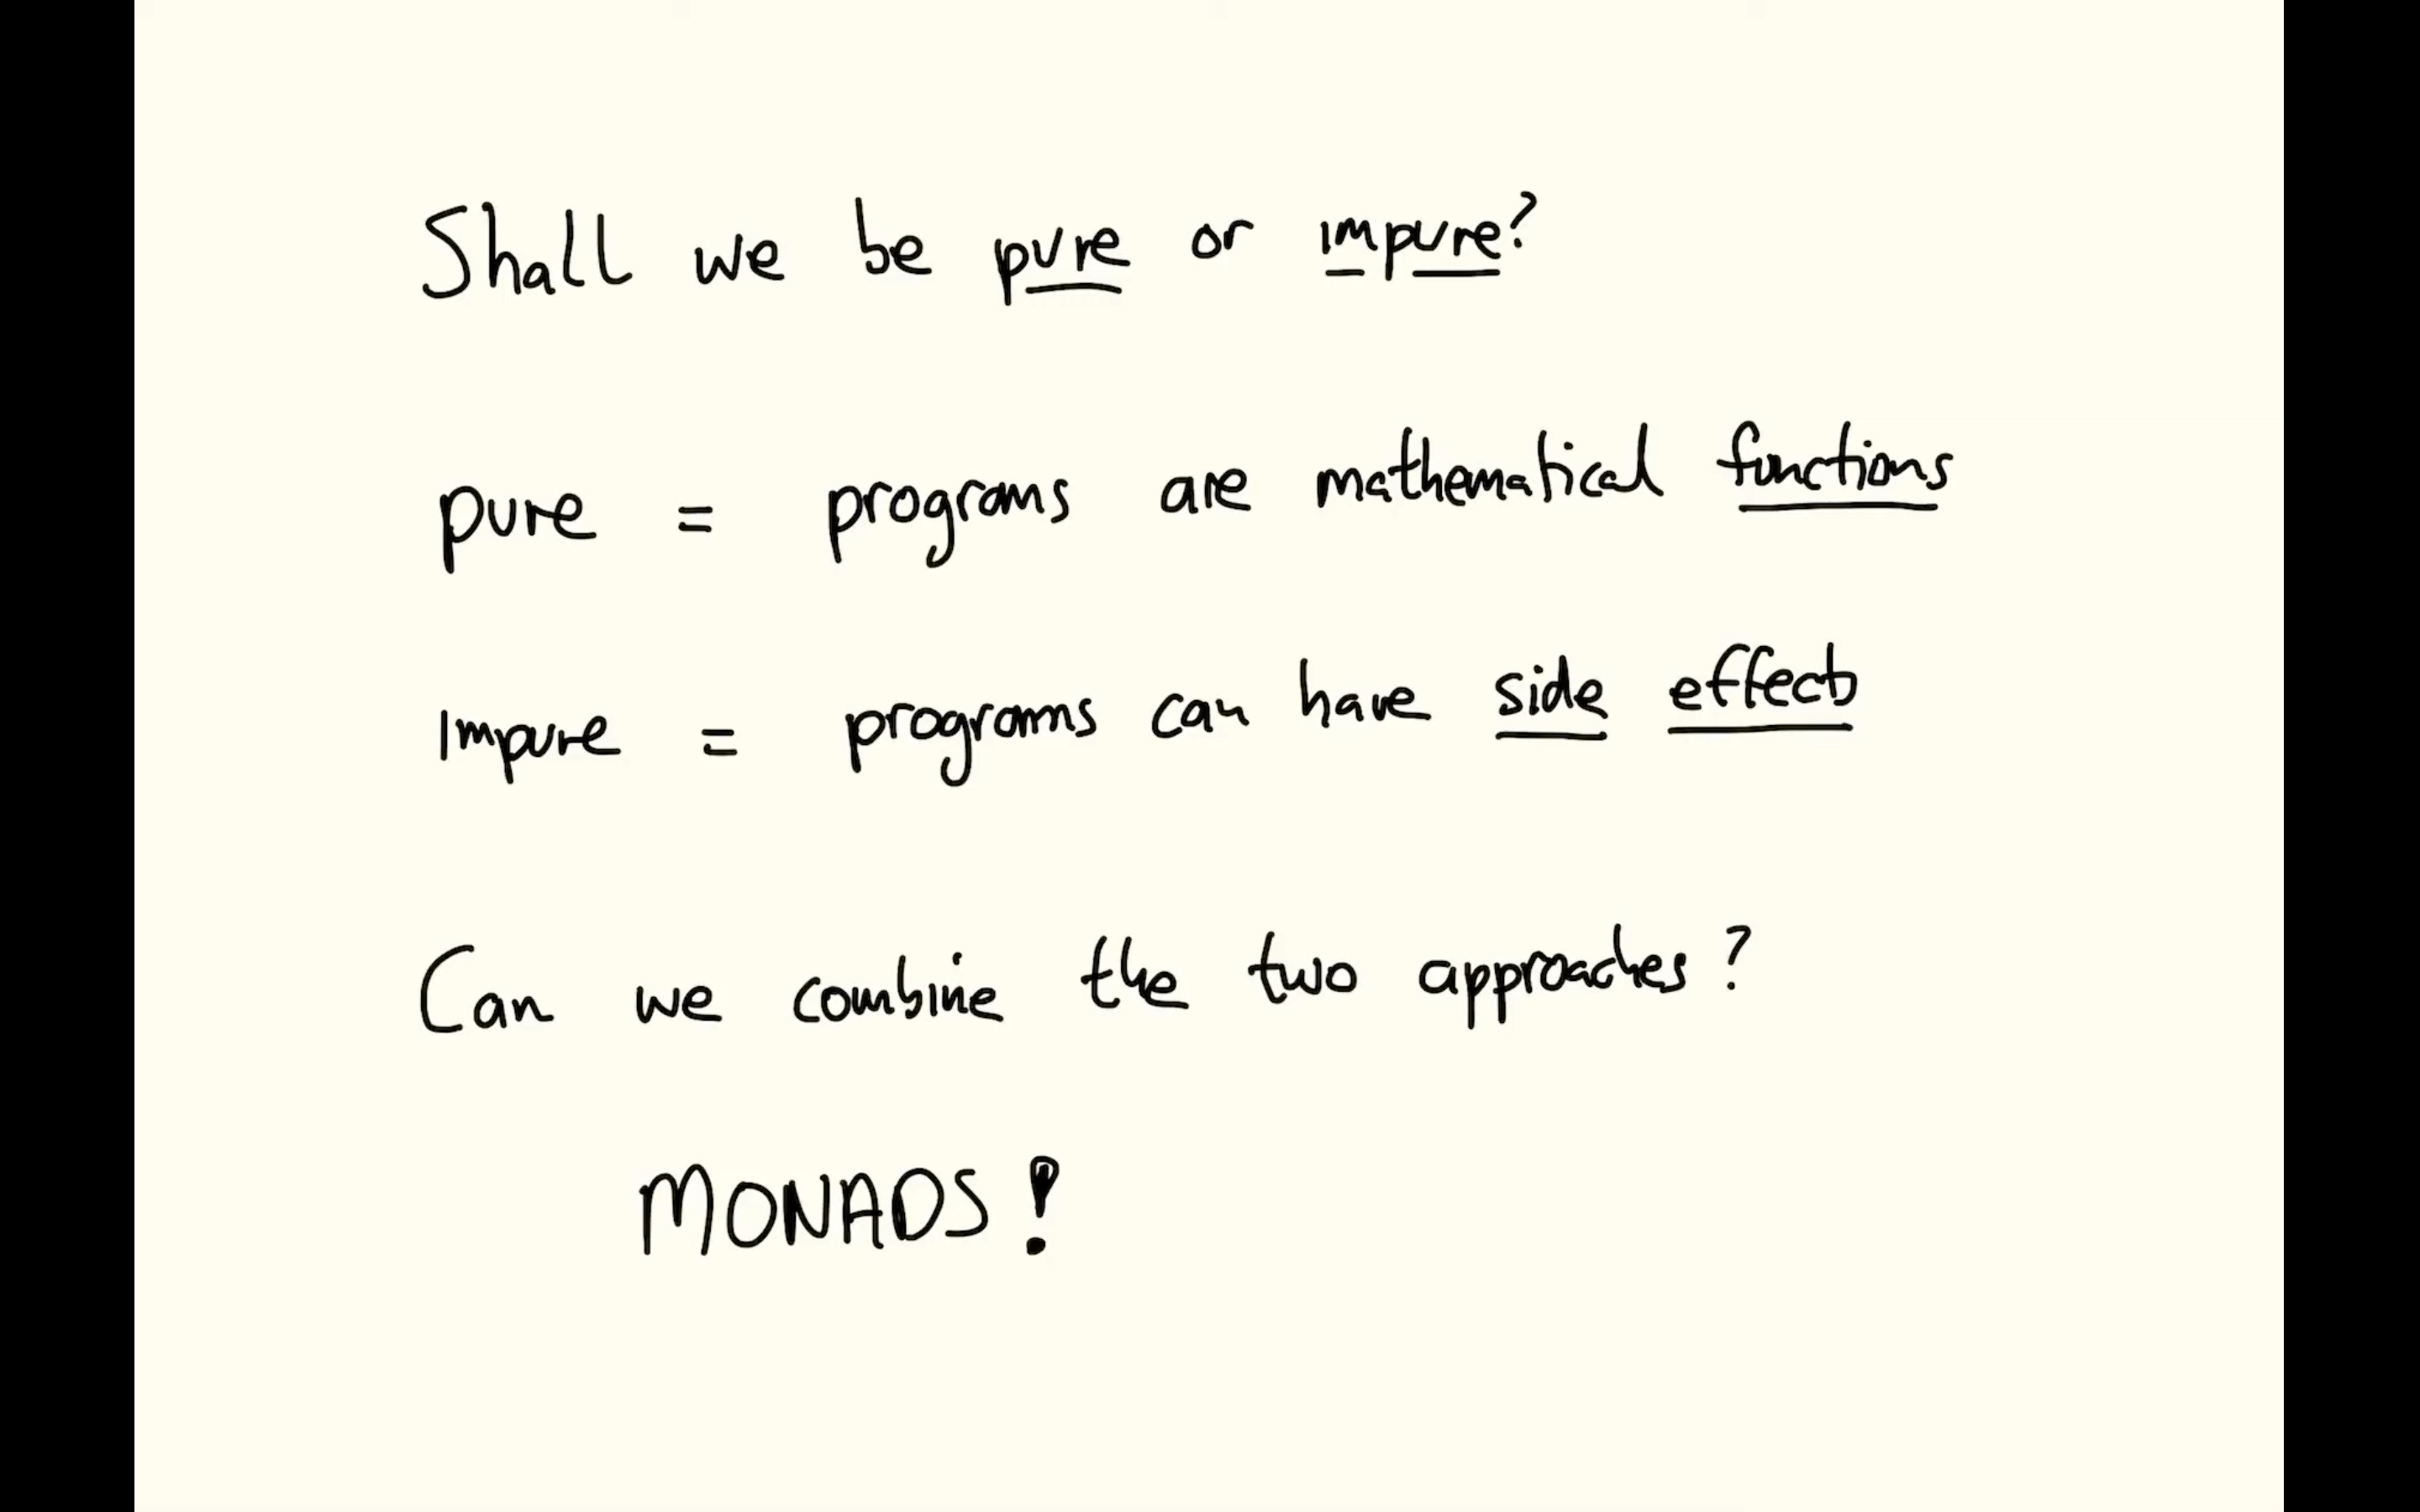 Shall we be pure or impure?
pure = programs are mathematical functions
impure = programs can have side effects
Can we combine the two approaches?
MONADS!